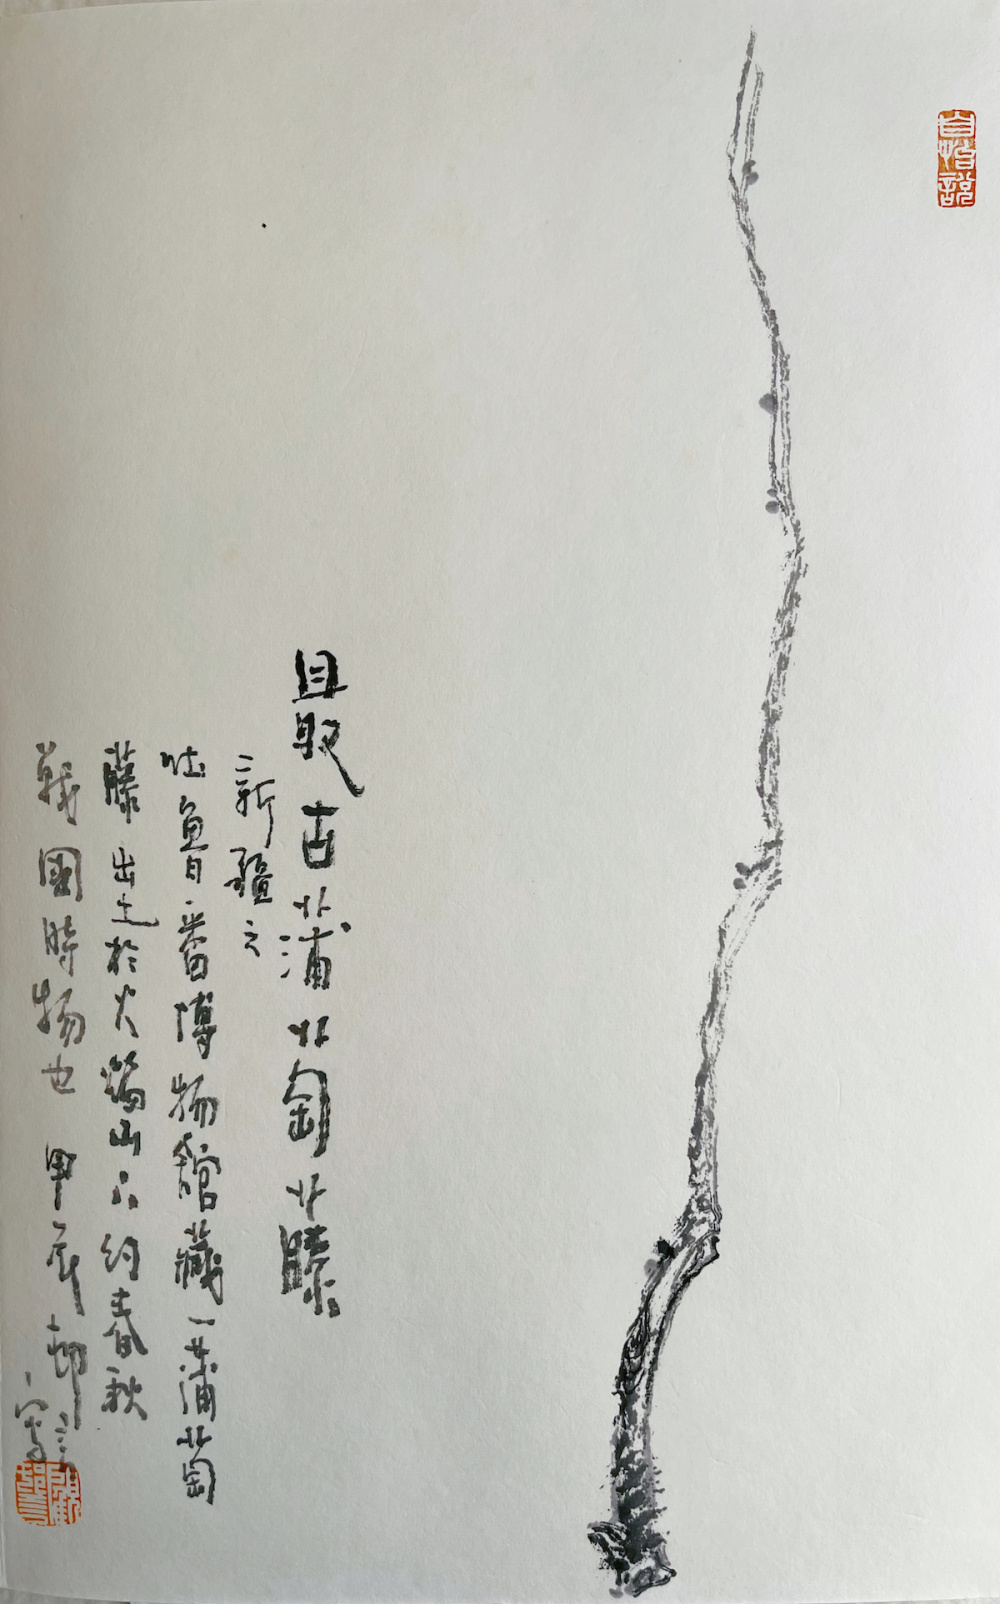 自怡說
最古蒲萄藤
新疆之
吐魯番博物館藏一蒲萄
藤出土於火焰山下約春秋
戰國時物也 甲辰邨言寫